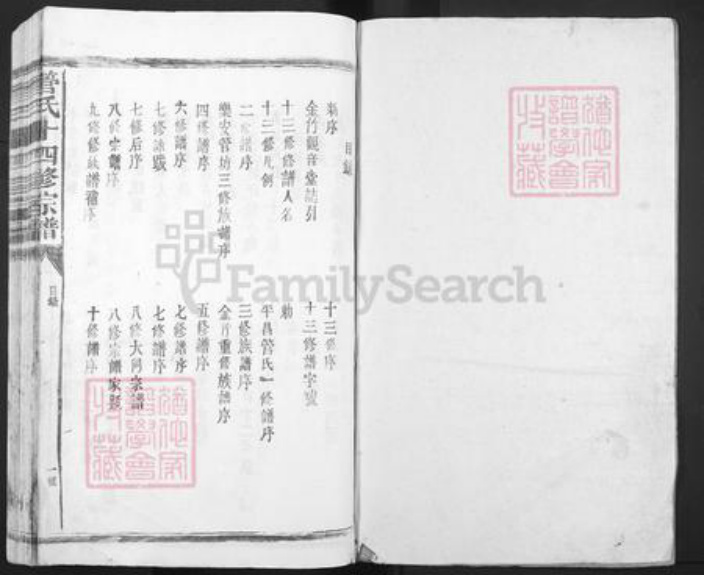 目錄
新序
十三修序
金竹觀音堂誌引
十三修譜字號
十三修譜人名
勅
十三修凡例
平昌管氏一修譜序
二修譜序
三修族譜序
樂安管坊三修族譜序
金竹重修族譜序
四修譜序
五修譜序
六修譜序
七修譜序
七修詠跋
七修譜序
七修后序
八修大同宗譜
八修宗譜序
八修宗譜家題
九修修族譜序
十修譜序
管氏十四修宗譜
目錄
一號
譜學會
FamilySearch
譜學會